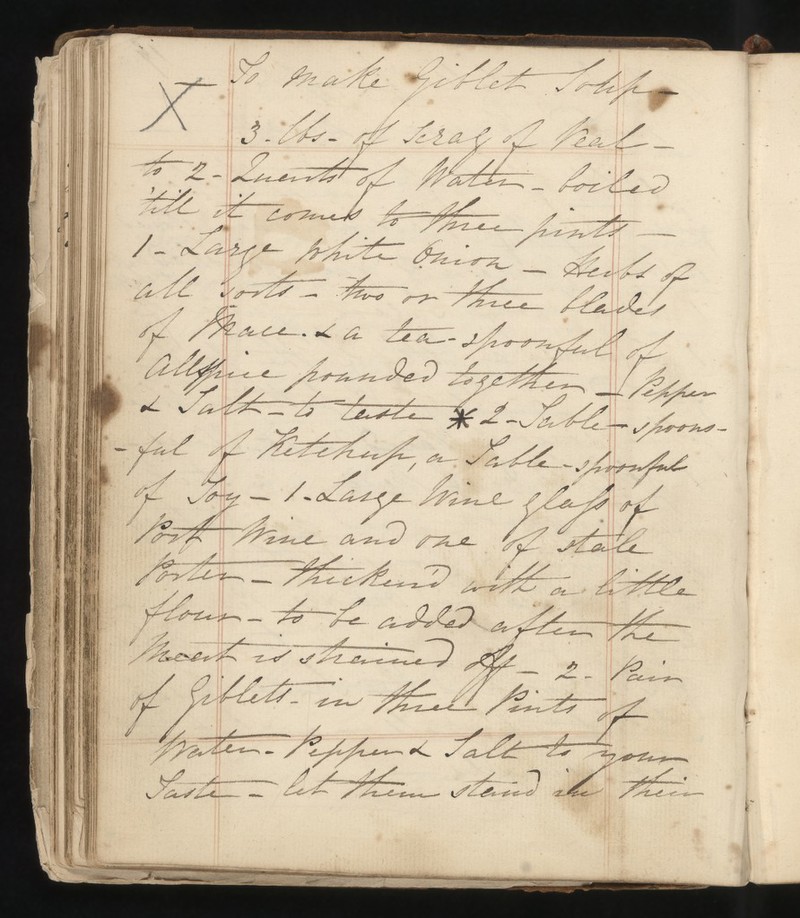 To make Giblet Soup -
X
3 - lbs - of Scrag of Veal -
to 2 - Quarts of Water - boiled
'till it comes to three pints -
1 - Large White Onion - Herbs of
all Sorts - two or three blades
of Mace. & a tea-spoonful of
Allspice pounded together - Pepper
& Salt - to taste * 2 - Table - spoons-
-ful of Ketchup, a Table-spoonful
of Soy - 1 - Large Wine glass of
Port Wine and one of stale
Porter - thicken'd with a little
flour - to be added after the
Meat is strained off - 2 - Pair
of Giblets - in three Pints of
Water - Pepper & Salt to your
Taste - let them stand in their